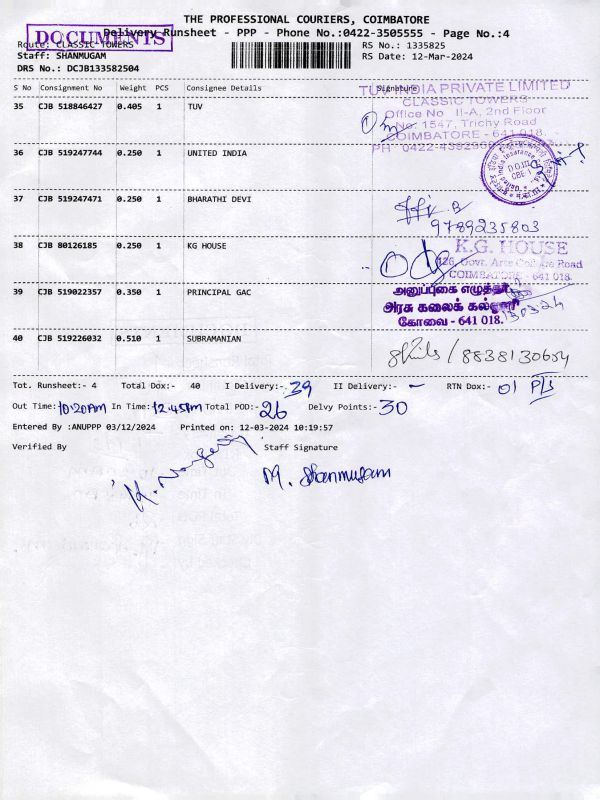 THE PROFESSIONAL COURIERS, COIMBATORE
DOCUMENTS
Delivery Runsheet - PPP - Phone No.:0422-3505555 - Page No.:4
Route: CLASSIC TOWERS RS No.: 1335825
Staff: SHANMUGAM RS Date: 12-Mar-2024
DRS No.: DCJB133582504
S No Consignment No Weight PCS Consignee Details Signature
TUV INDIA PRIVATE LIMITED
CLASSIC TOWERS
Office No II-A, 2nd Floor
No. 1547, Trichy Road
COIMBATORE - 641 018.
35 CJB 518846427 0.405 1 TUV
36 CJB 519247744 0.250 1 UNITED INDIA
37 CJB 519247471 0.250 1 BHARATHI DEVI
9789235803
38 CJB 80126185 0.250 1 KG HOUSE
K.G. HOUSE
COIMBATORE - 641 018.
39 CJB 519022357 0.350 1 PRINCIPAL GAC
அனுப்புகை எழுத்தர்
அரசு கலைக் கல்லூரி
கோவை - 641 018.
130324
40 CJB 519226032 0.510 1 SUBRAMANIAN
/ 8838130654
Tot. Runsheet:- 4 Total Dox:- 40 I Delivery:- 39 II Delivery:- - RTN Dox:- 01 P/S
Out Time: 10:20Am In Time: 12:45Pm Total POD:- 26 Delvy Points:- 30
Entered By :ANUPPP 03/12/2024 Printed on: 12-03-2024 10:19:57
Verified By Staff Signature
M. Shanmugam